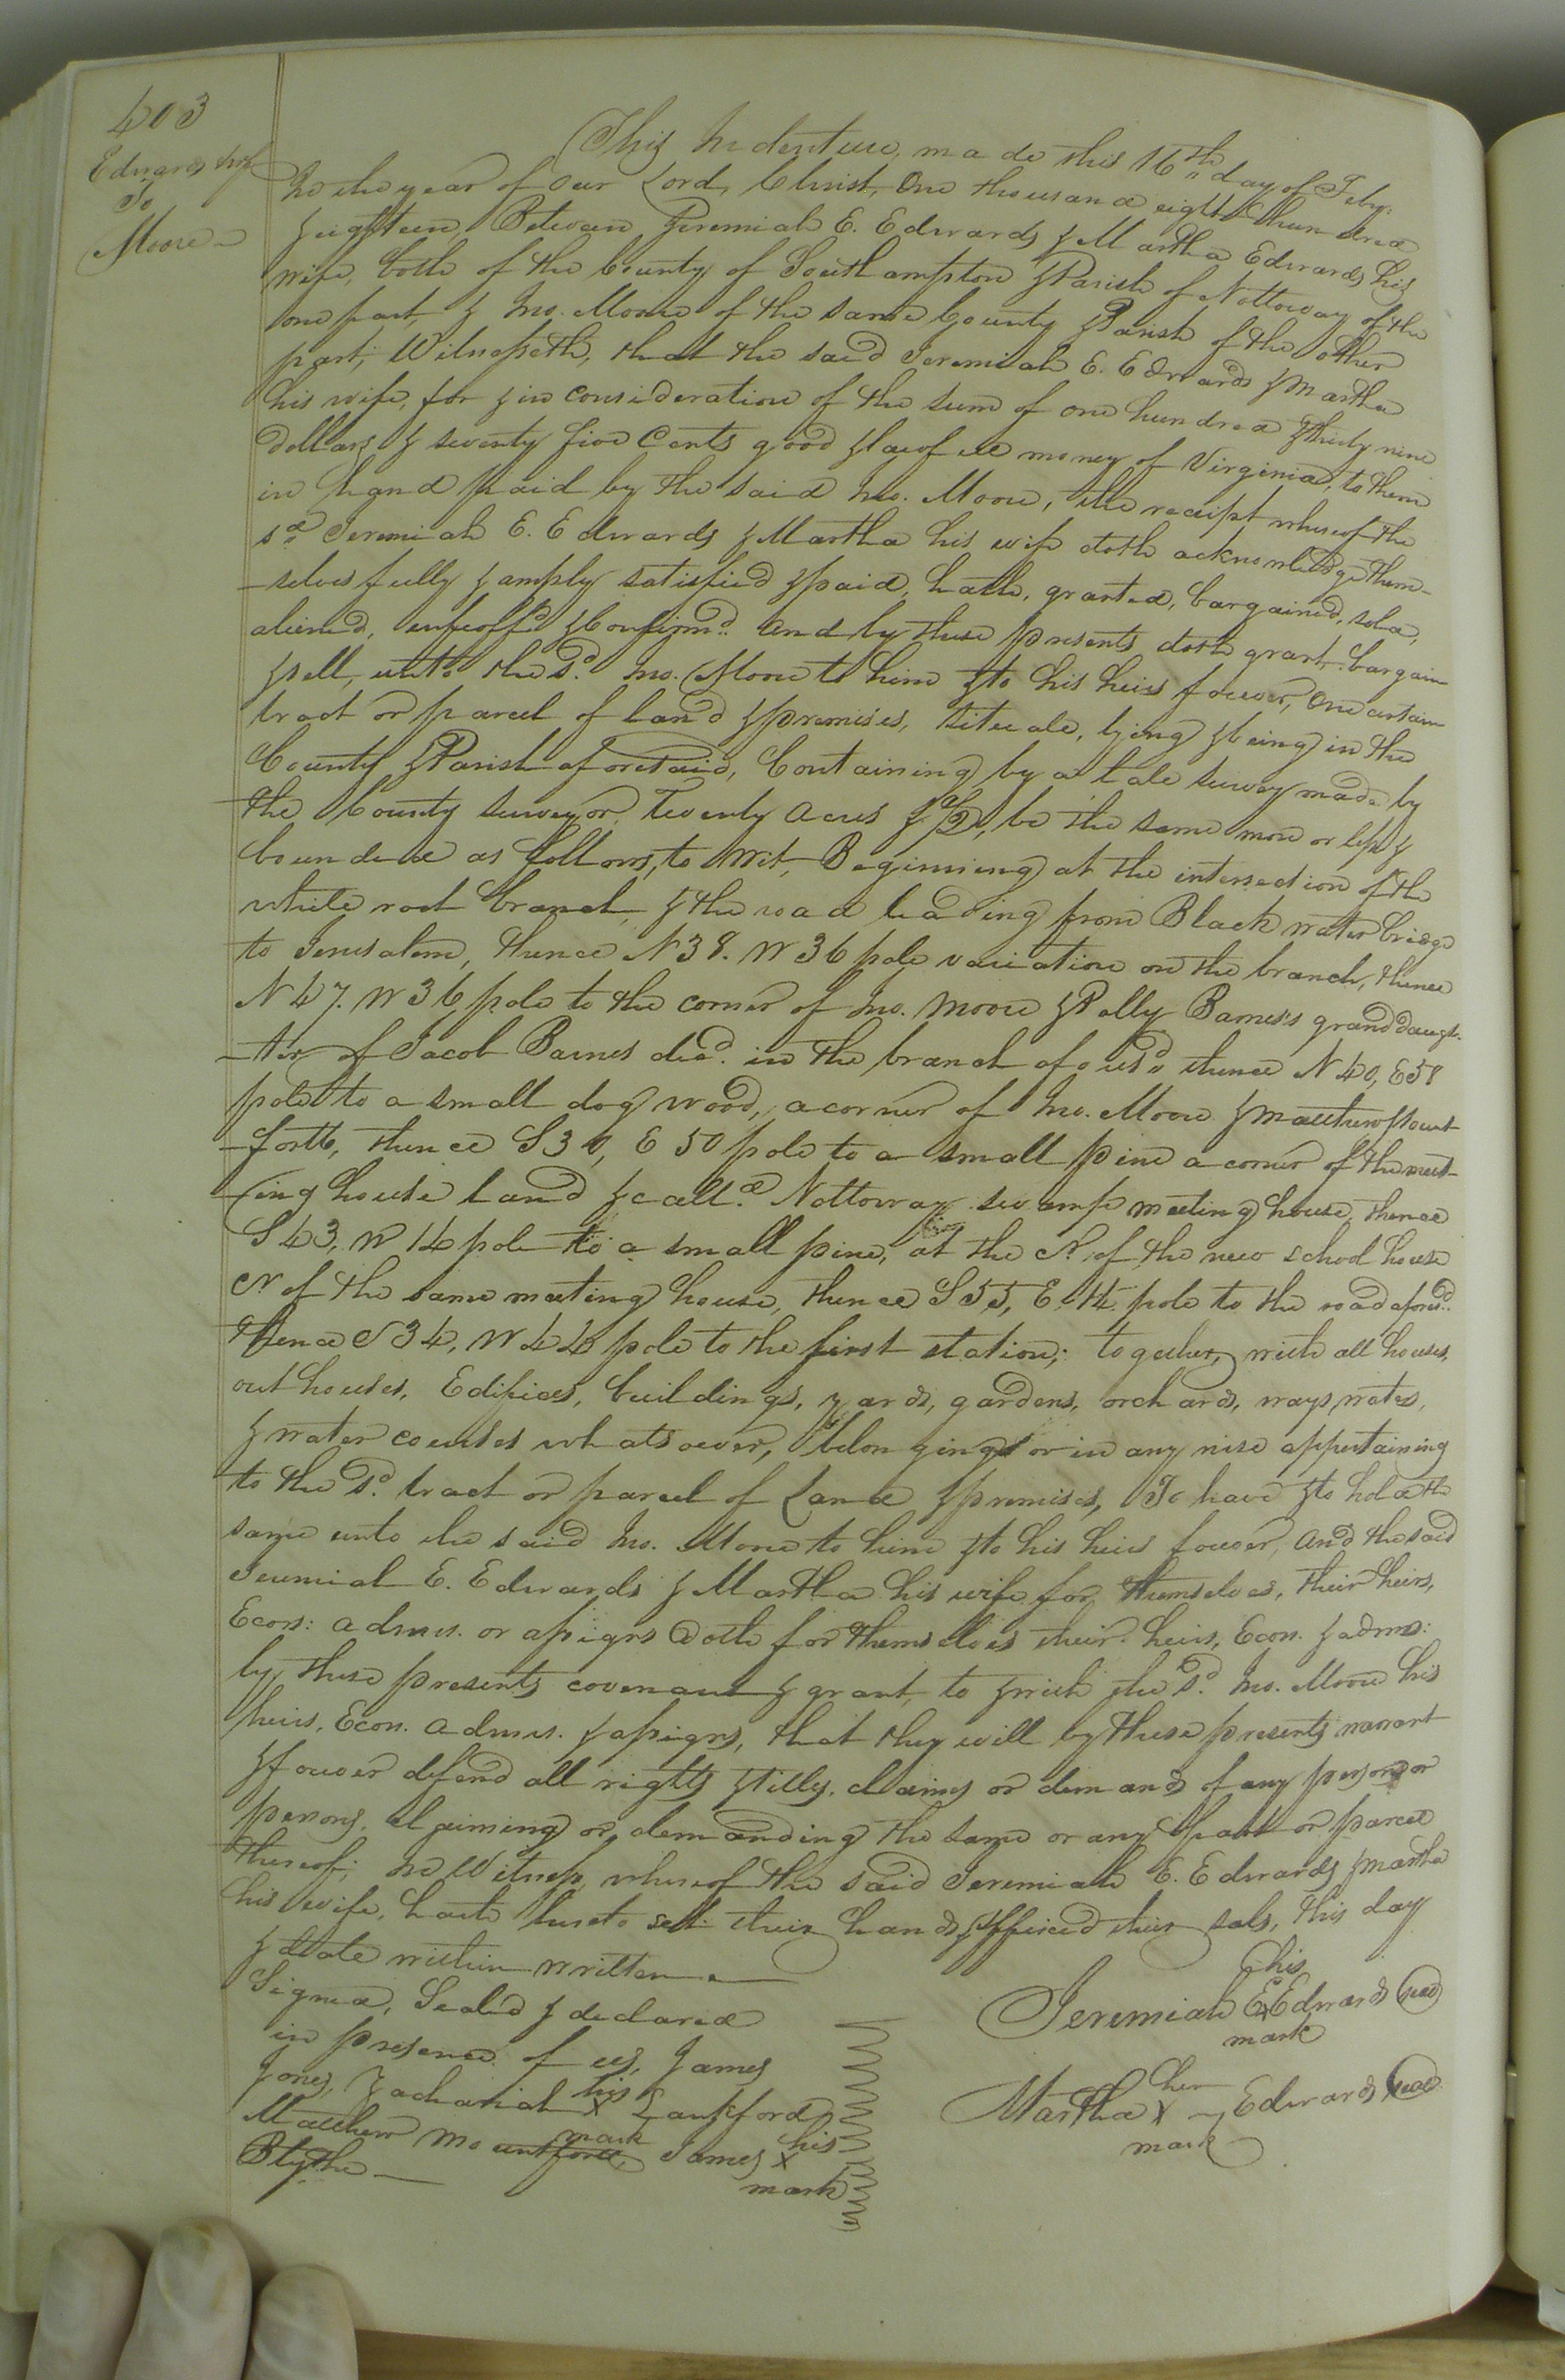 403
Edwards & wf
To
Moore
This Indenture, made this 16th day of Feby.
In the year of our Lord, Christ, One thousand eight hundred
& eighteen, Between Jeremiah E. Edwards & Martha Edwards his
wife, both of the County of Southampton & Parish of Nottoway of the
one part, & Jno. Moore of the same County & Parish of the other
part, Witnesseth, that the said Jeremiah E. Edwards & Martha
his wife, for & in consideration of the sum of one hundred & thirty nine
dollars & seventy five Cents good & lawful money of Virginia, to them
in hand paid by the said Jno. Moore, the receipt whereof the
sd. Jeremiah E. Edwards & Martha his wife doth acknowledge them-
-selves fully & amply satisfied & paid, hath, granted, bargained, sold,
aliened, enfeoff'd & Confirmd. and by these presents doth grant bargain
& sell, unto the sd. Jno. Moore to him & to his heirs forever, one certain
tract or parcel of land & premises, situate, lying & being in the
County & Parish aforesaid, Containing by a late survey made by
the County surveyor, Twenty acres & 1/2, be the same more or less &
bounded as follows, to wit, Beginning at the intersection of the
white root branch, & the road leading from Black water bridge
to Jerusalem, thence N 38. W 36 pole variation on the branch, thence
N 47. W 36 pole to the corner of Jno. Moore & Polly Barnes's granddaugh-
-ter of Jacob Barnes decd. in the branch aforesd., thence N 40, E 58
pole to a small dog wood, a corner of Jno. Moore & Matthew Mount
-forth, thence S 30, E 50 pole to a small pine a corner of the meet-
-ing house land & calld. Nottoway swamp meeting house, thence
S 43, W 14 pole to a small pine, at the N. of the new school house
N. of the same meeting house, thence S 55, E. 14 pole to the road aforesd.
thence S 34, W 44 pole to the first station; together, with all houses,
out houses, Edifices, buildings, yards, gardens, orchards, ways, waters,
& water courses whatsoever, belonging or in any wise appertaining
to the sd. tract or parcel of Land & premises, To have & to hold the
same unto the said Jno. Moore to him & to his heirs forever, and the said
Jeremiah E. Edwards & Martha his wife for themselves, their heirs,
Ecors: admrs. or assigns doth for themselves their heirs, Ecors. & admrs:
by these presents covenant & grant, to & with the sd. Jno. Moore his
heirs, Ecors. admrs. & assigns, that they will by these presents warrant
& forever defend all rights & titles, claims or demands of any person or
persons, claiming or demanding the same or any part or parcel
thereof; In Witness, whereof the said Jeremiah E. Edwards & Martha
his wife, hath hereto sett their hands & affixed their seals, this day
& date within written
Signed, Sealed & declared
in presence of us, James
Jones, Zachariah his X mark Lankford
Matthew Mountforth, James his X mark
Blythe
Jeremiah E. his X mark Edwards seal
Martha her X mark Edwards seal